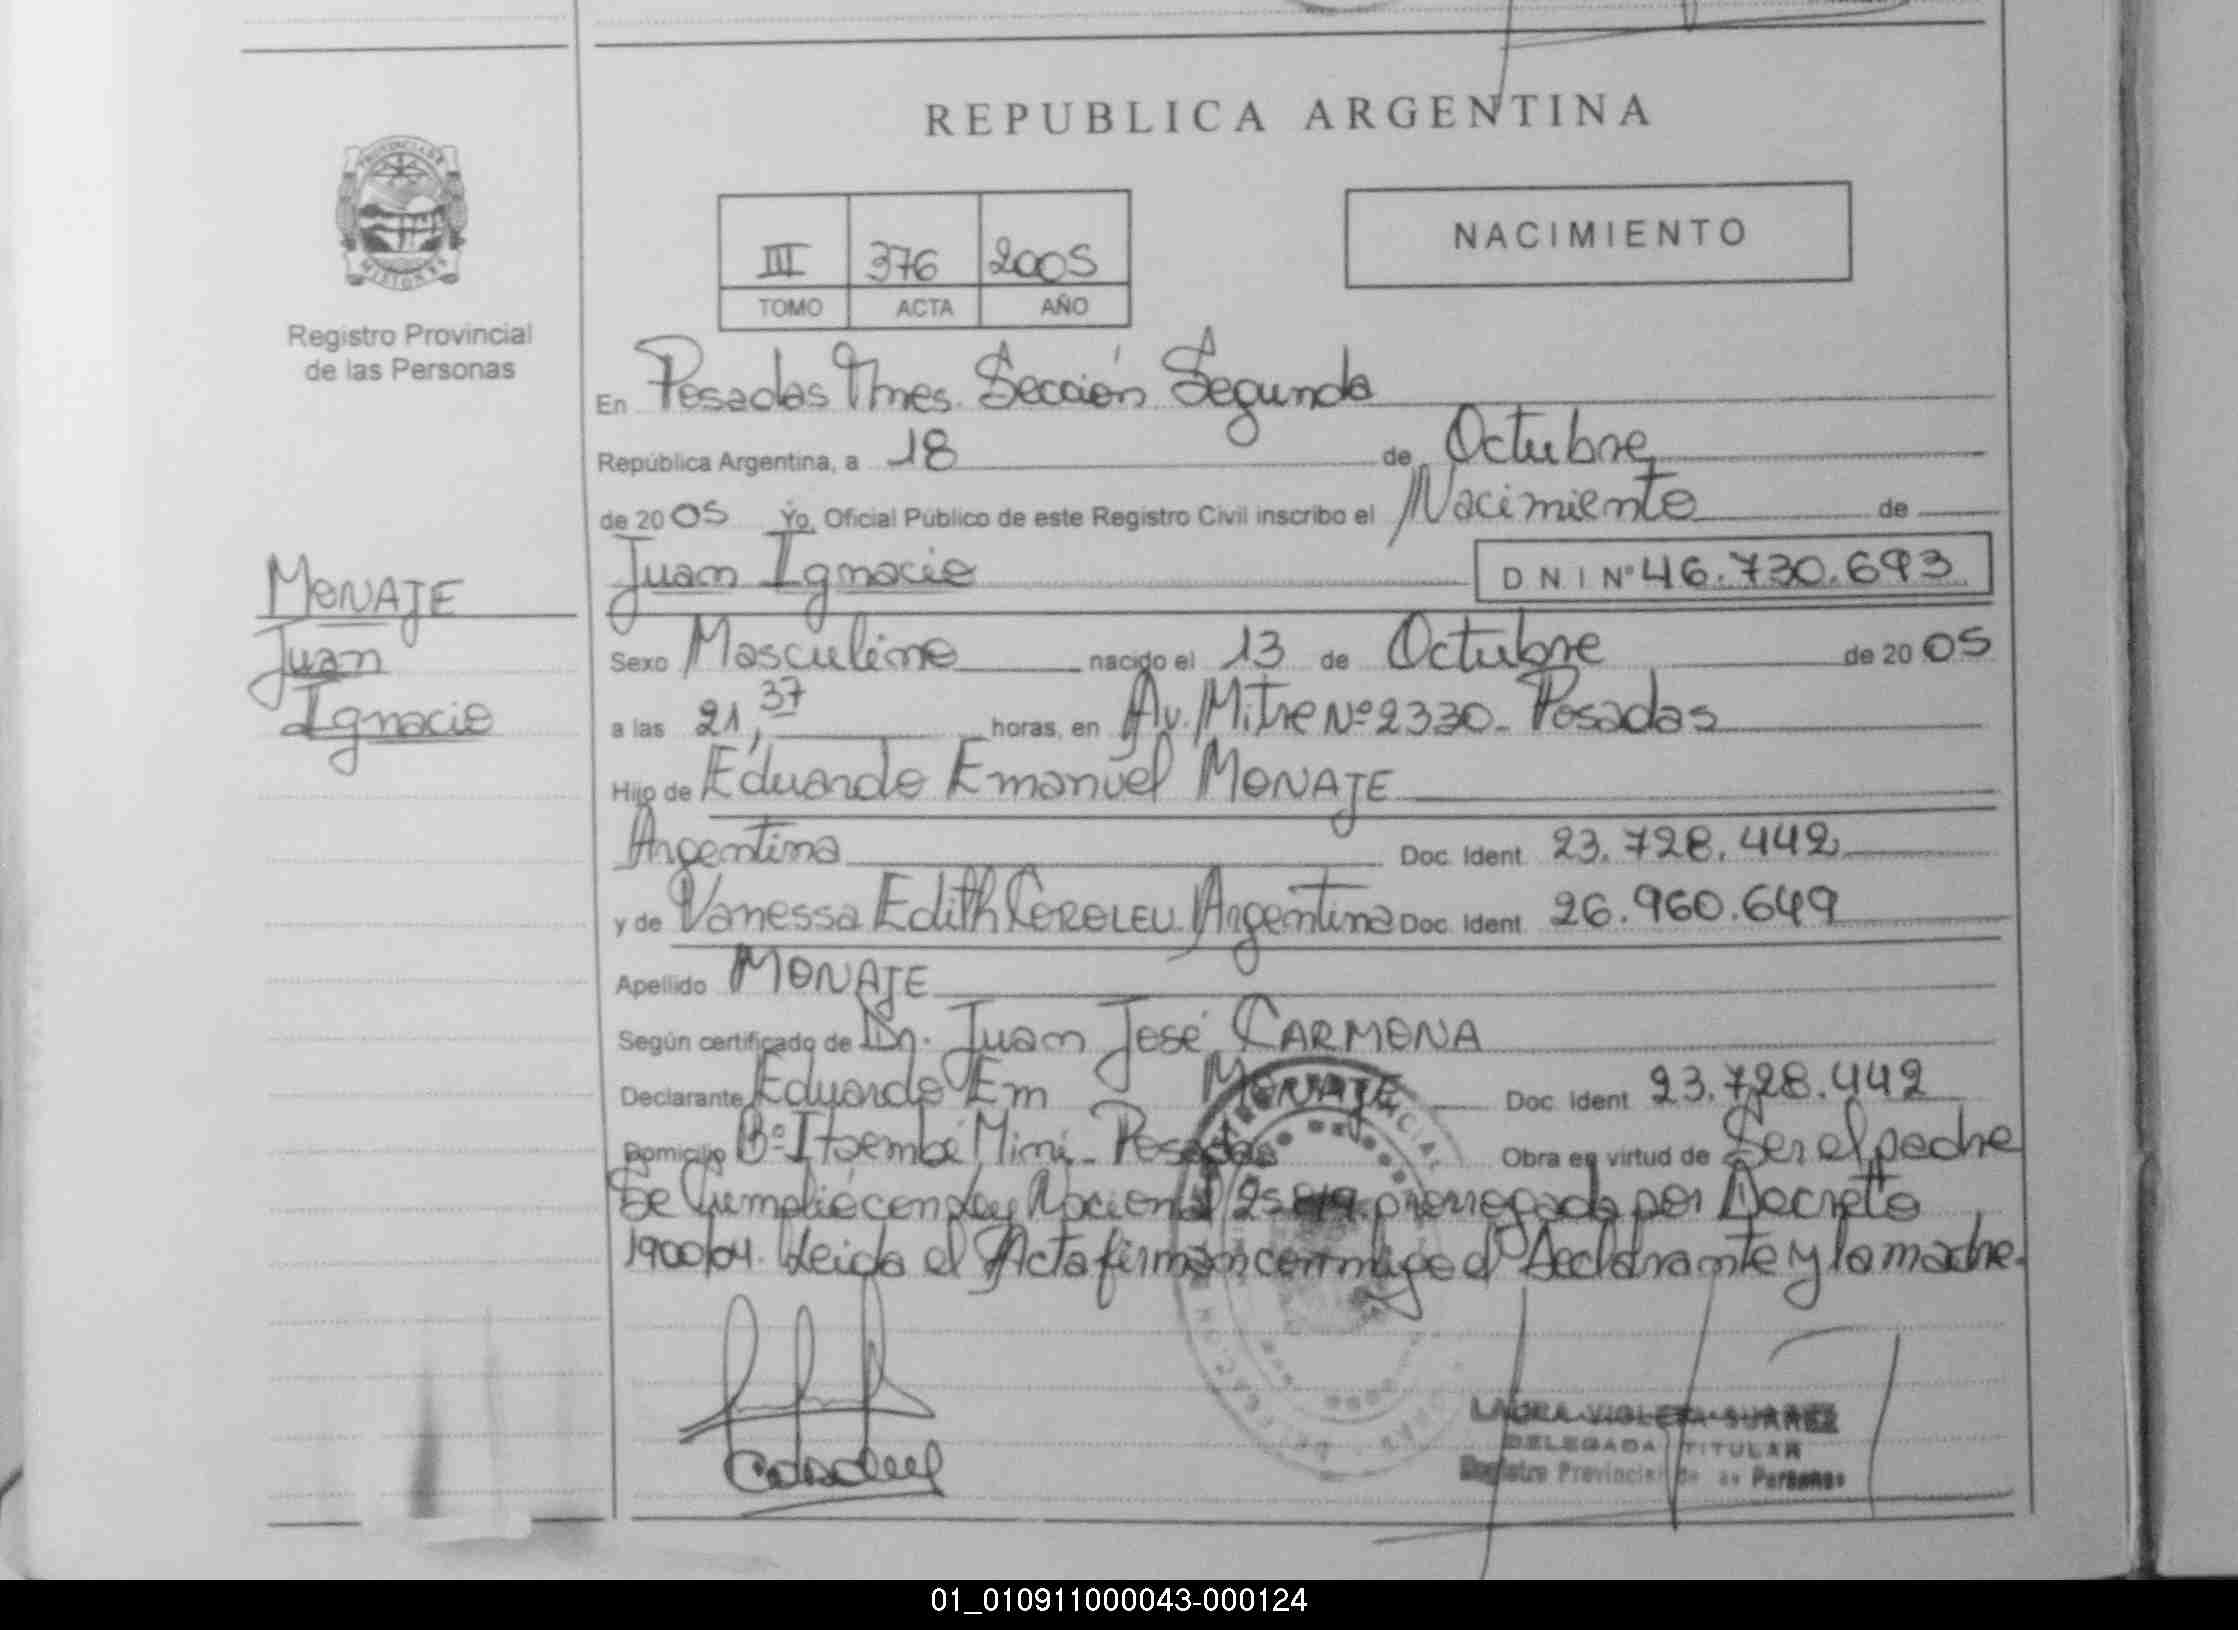 REPUBLICA ARGENTINA
PROVINCIA DE
MISIONES
Registro Provincial
de las Personas
III 376 2005
TOMO ACTA AÑO
NACIMIENTO
En Posadas Mnes. Sección Segunda
República Argentina, a 18 de Octubre
de 2005 Yo, Oficial Público de este Registro Civil inscribo el Nacimiento de
MONAJE
Juan
Ignacio
Juan Ignacio D N I Nº 46.730.693
Sexo Masculino nacido el 13 de Octubre de 2005
a las 21,37 horas, en Av. Mitre Nº 2330- Posadas
Hijo de Eduardo Emanuel MONAJE
Argentina Doc. Ident. 23.728.442
y de Vanessa Edith COROLEU Argentina Doc. Ident. 26.960.649
Apellido MONAJE
Según certificado de Dr. Juan José CARMONA
Declarante Eduardo Em MONAJE Doc. Ident. 23.728.442
Domicilio Bº Itaembé Miní- Posadas Obra en virtud de Ser el padre
Se Cumplió con Ley Nacional 25.819 prorrogada por Decreto
1900/04. Leida el Acta firman conmigo el Declarante y la madre.
LAURA VIOLETA SUAREZ
DELEGADA TITULAR
Registro Provincial de las Personas
01_010911000043-000124